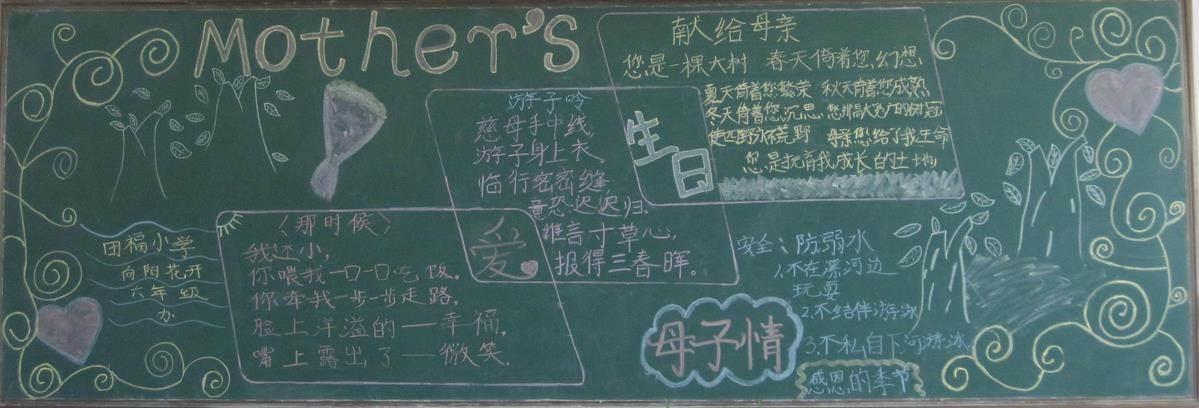 Mother's
献给母亲
您是一棵大树 春天倚着您幻想
夏天倚着您繁荣 秋天倚着您成熟
冬天倚着您沉思 您那高大宽广的树冠
使四野不荒野 母亲您给了我生命
您是抚育我成长的土地
生日
游子吟
慈母手中线,
游子身上衣,
临行密密缝,
意恐迟迟归.
谁言寸草心,
报得三春晖。
爱
〈那时候〉
我还小,
你喂我一口一口吃饭。
你牵我一步一步走路,
脸上洋溢的——幸福,
嘴上露出了——微笑。
田福小学
向阳花开
六年级
办
母子情
安全:防弱水
1.不在漯河边
玩耍
2.不结伴游泳
3.不私自下河游泳
感恩的季节